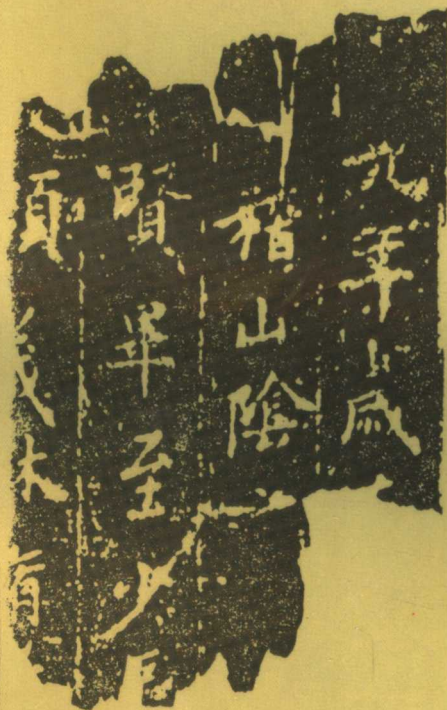 九年歲
稽山陰
賢畢至少
領茂林脩